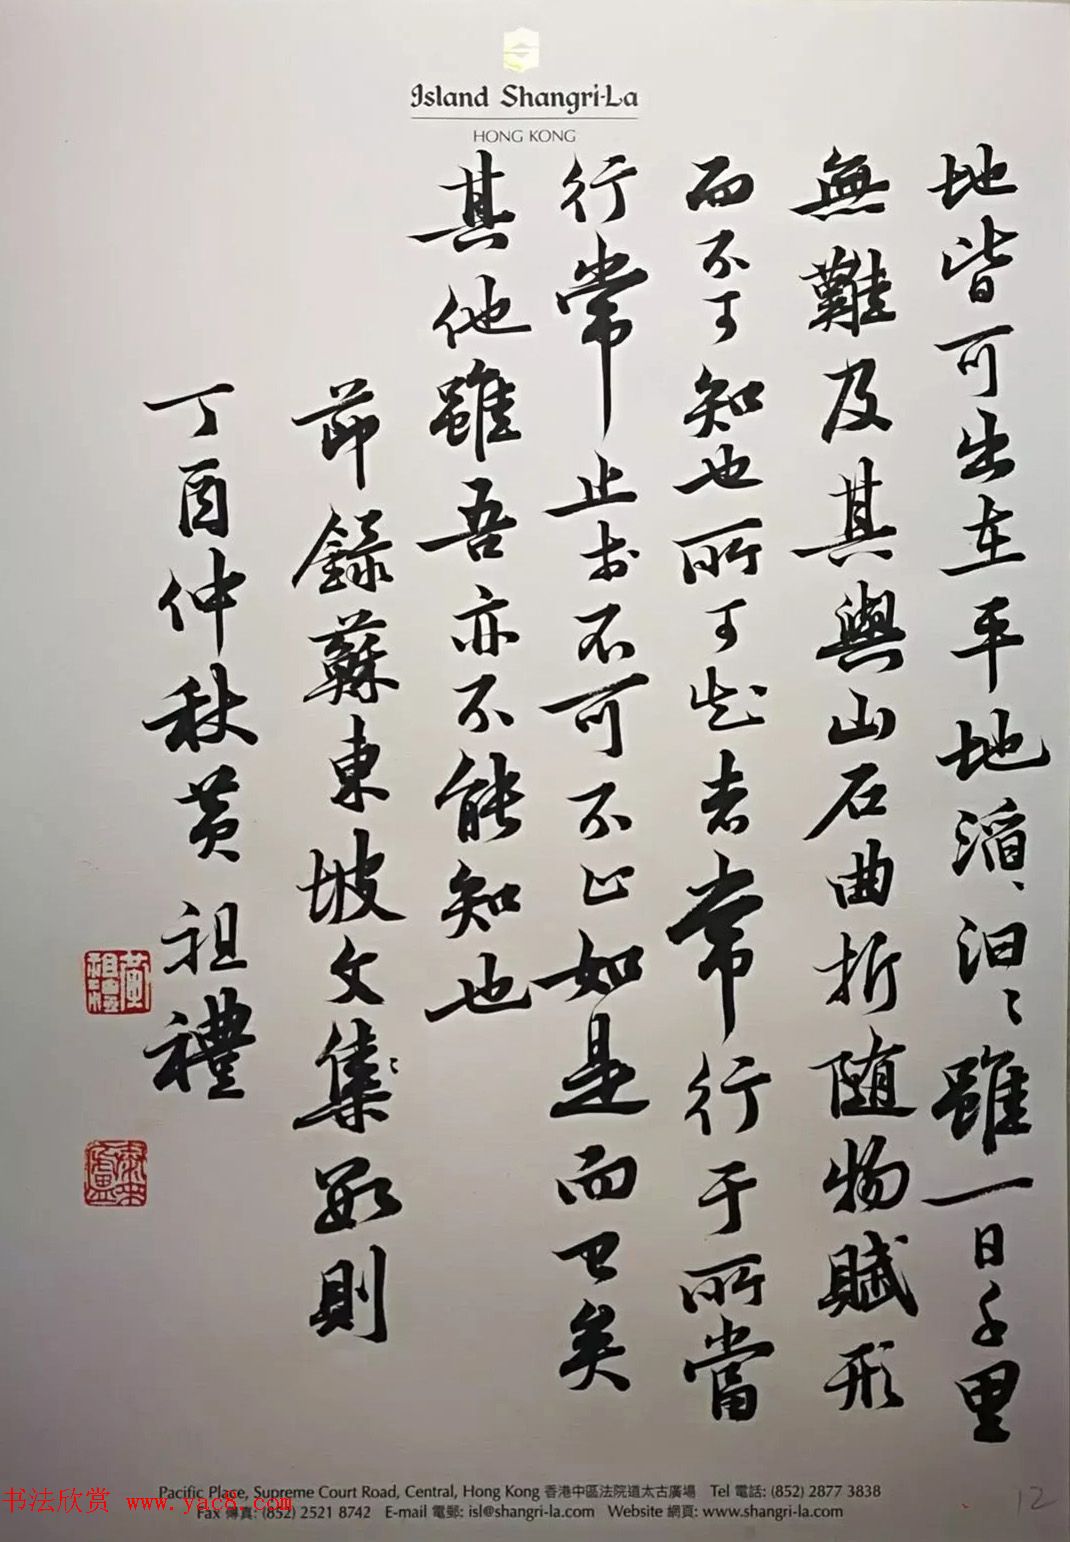 Island Shangri-La
HONG KONG
地皆可出在平地滔、汩〻雖一日千里
無難及其與山石曲折随物賦形
而不可知也所可知者常行于所當
行常止於不可不止如是而已矣
其他雖吾亦不能知也
節錄蘇東坡文集〻數則
丁酉仲秋黄祖禮
Pacific Place, Supreme Court Road, Central, Hong Kong 香港中區法院道太古廣場 Tel 電話: (852) 2877 3838
Fax 傳真: (852) 2521 8742 E-mail 電郵: isl@shangri-la.com Website 網頁: www.shangri-la.com
书法欣赏 www.yac8.com
12